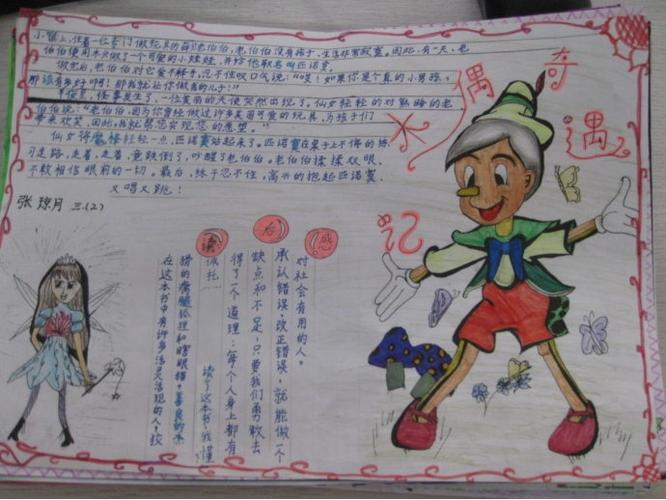 木偶奇遇记
小镇上,住着一位专门做玩具的老伯伯,老伯伯没有孩子,生活非常寂寞。因此,有一天,老
伯伯使用木头做了一个可爱的小娃娃,并给他取名叫匹诺曹。
做完后,老伯伯对它爱不释手,忍不住叹口气说:“哎!如果你是个真的小男孩,
那该有多好啊!那我就让你做我的儿子!”
怪事发生了,一位美丽的天使突然出现了。仙女轻轻的对熟睡的老
伯伯说:“老伯伯,因为你曾经做过许多美丽可爱的玩具,为孩子们
带来欢笑,因此,我就帮您实现您的愿望。”
仙女将轻轻一点,匹诺曹站起来了。匹诺曹在桌子上不停的练
习走路,走着,走着,竟跌倒了,吵醒了老伯伯。老伯伯揉揉双眼,
不敢相信眼前的一切,最后,终于忍不住,高兴的抱起匹诺曹,
又唱又跳!
张琼月 三.(2)
读后感
在这本书中有许多活灵活现的人,狡
猾的狐狸和瞎眼猫,善良的木
佩托
读了这本书,我懂
得了一个道理:每个人身上都有
缺点和不足,只要我们勇敢去
承认错误,改正错误,就能做一个
对社会有用的人。